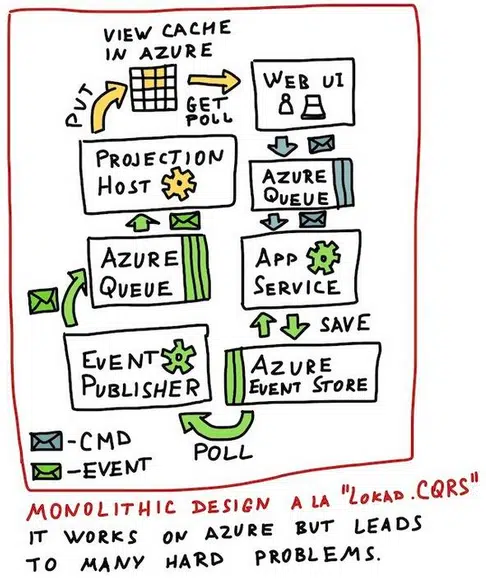 VIEW CACHE
IN AZURE
PUT
GET
POLL
WEB UI
PROJECTION
HOST
AZURE
QUEUE
AZURE
QUEUE
APP
SERVICE
SAVE
EVENT
PUBLISHER
AZURE
EVENT STORE
POLL
-CMD
-EVENT
MONOLITHIC DESIGN A LA "LOKAD.CQRS"
IT WORKS ON AZURE BUT LEADS
TO MANY HARD PROBLEMS.